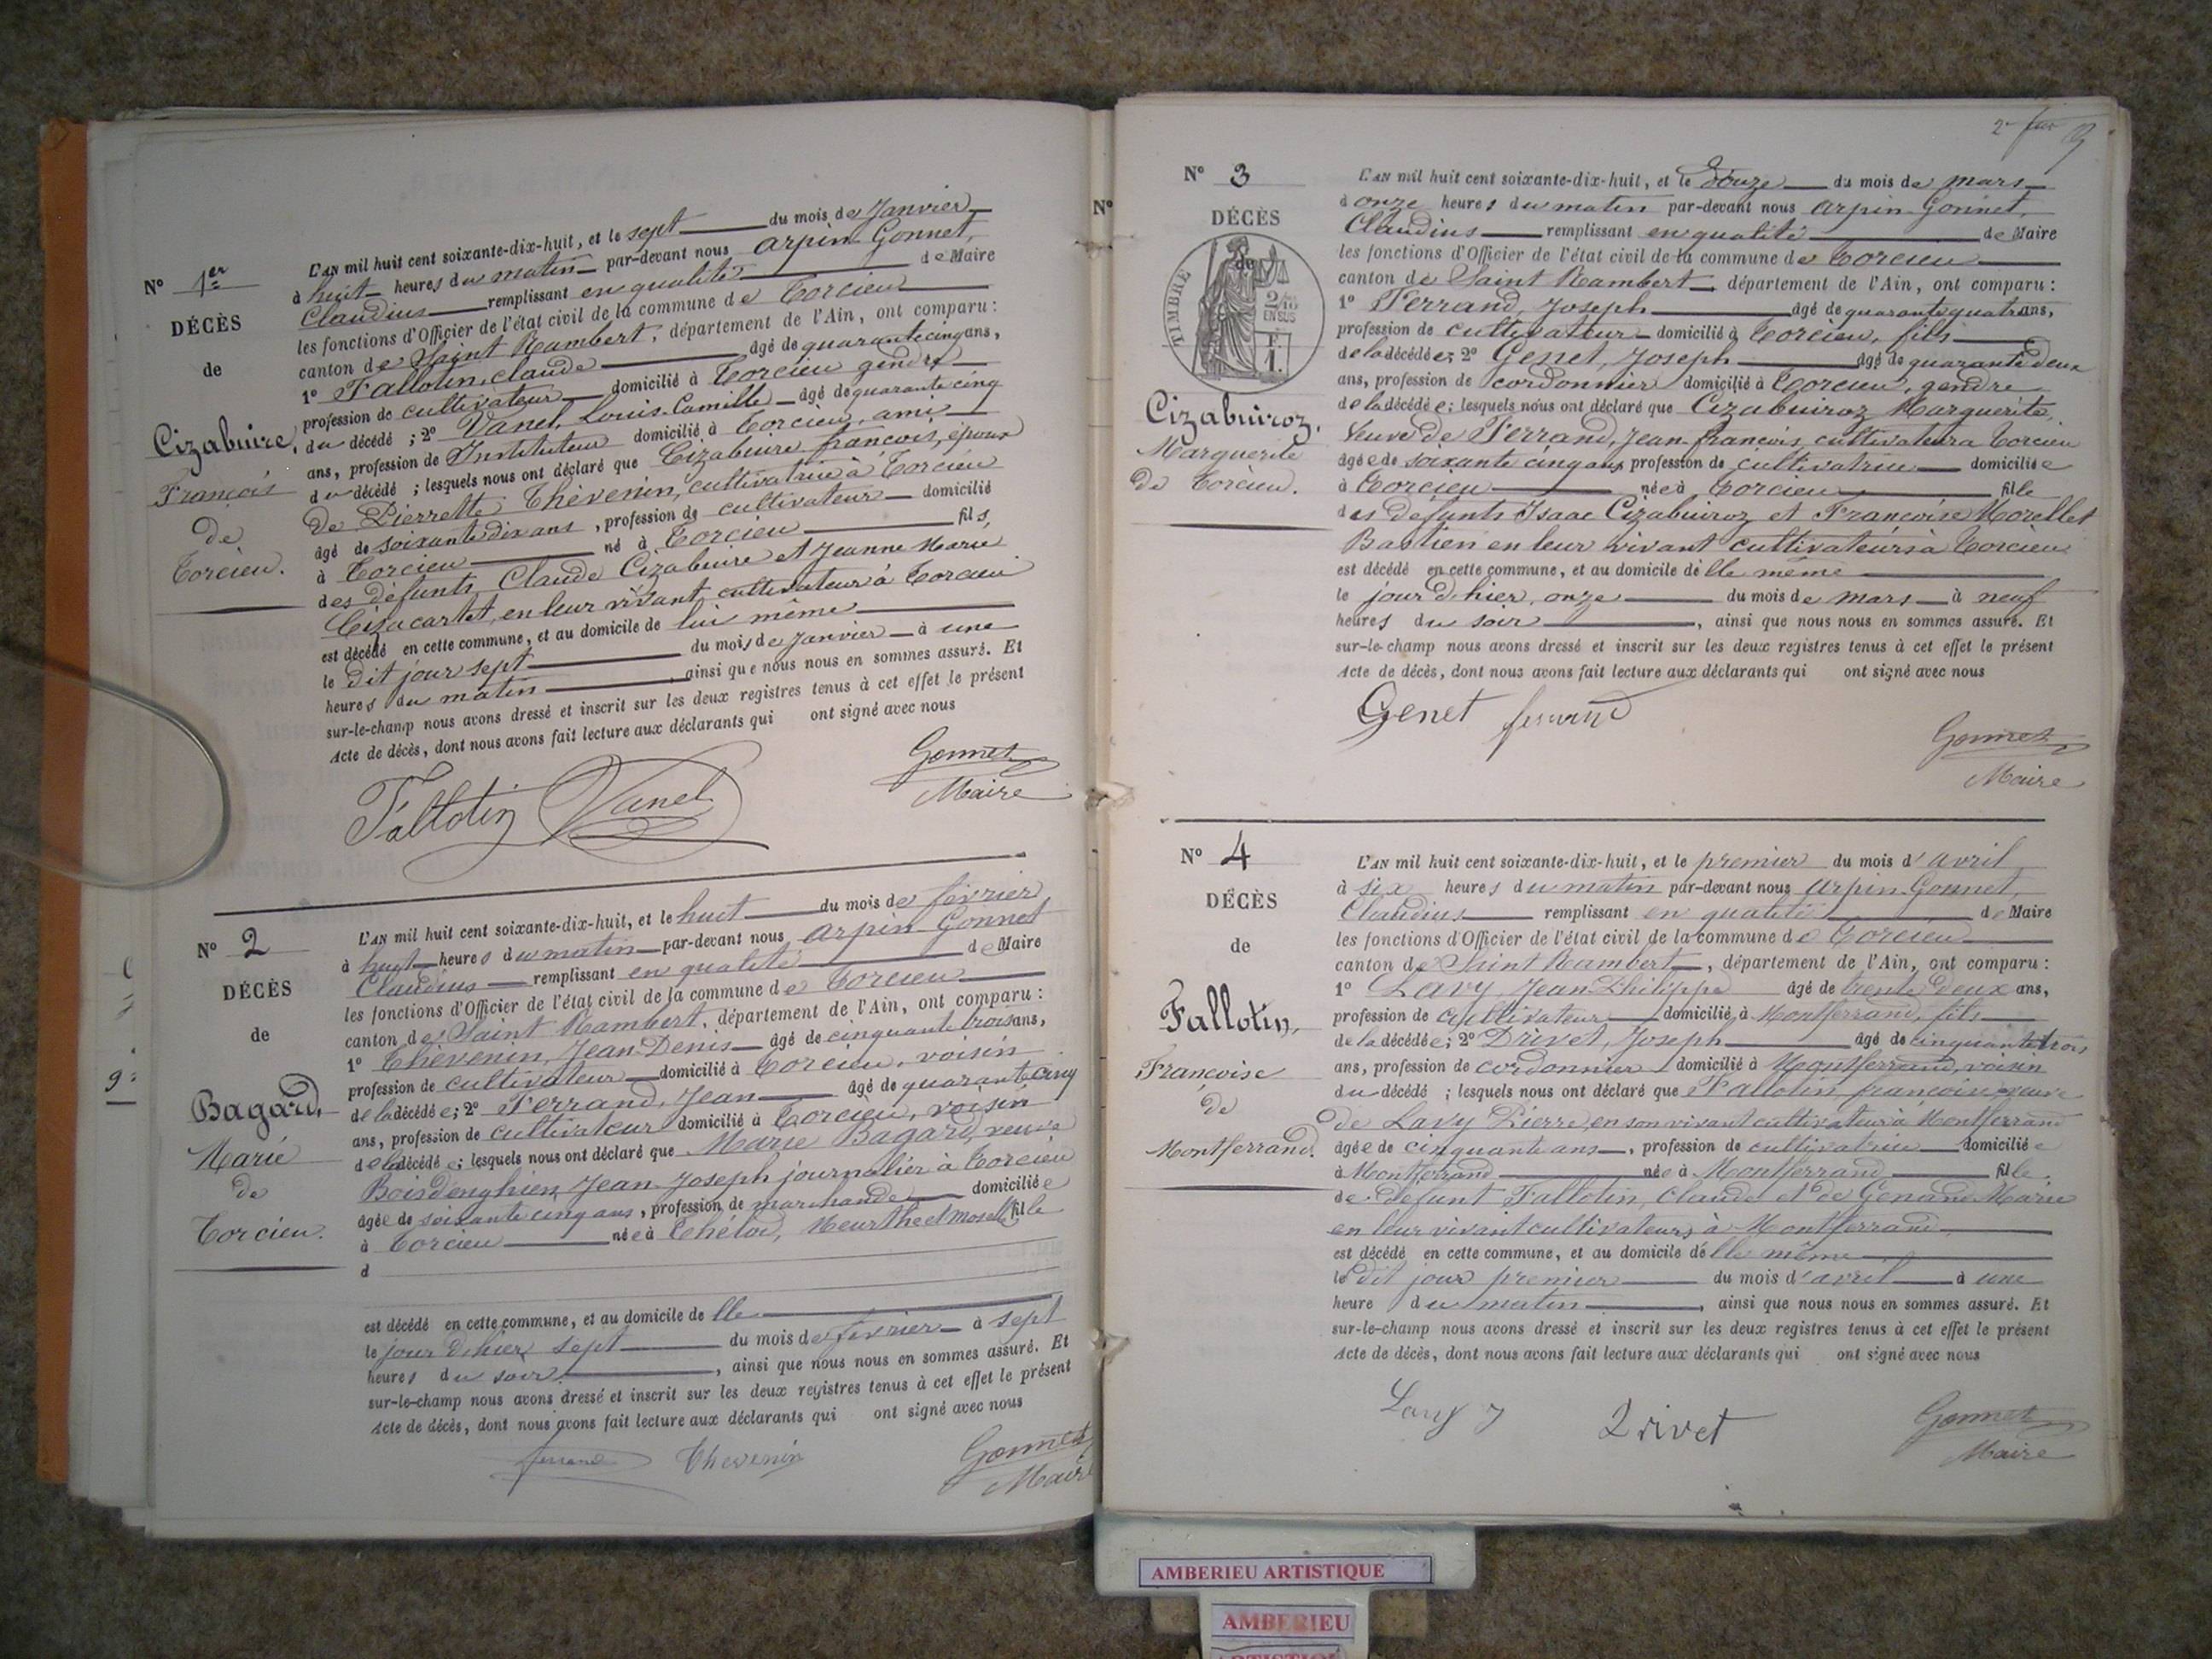 N° 1er
DÉCÈS
de
Cizabuire,
François
de
Torcieu.
L'AN mil huit cent soixante-dix-huit, et le sept du mois de Janvier
à huit heures du matin par-devant nous Arpin-Gonnet,
Claudius remplissant en qualité de Maire
les fonctions d'Officier de l'état civil de la commune de Torcieu
canton de Saint Rambert, département de l'Ain, ont comparu :
1° Fallotin, Claude âgé de quarante cinq ans,
profession de cultivateur domicilié à Torcieu gendre
du décédé ; 2° Vanel, Louis-Camille âgé de quarante cinq
ans, profession de Instituteur domicilié à Torcieu, ami
du décédé ; lesquels nous ont déclaré que Cizabuire françois, époux
de Pierrette Thévenin, cultivatrice à Torcieu
âgé de soixante dix ans, profession de cultivateur domicilié
à Torcieu né à Torcieu fils,
des défunts Claude Cizabuire et Jeanne Marie
Cizacartet, en leur vivant cultivateur à Torcieu
est décédé en cette commune, et au domicile de lui même
le dit jour sept du mois de Janvier à une
heures du matin, ainsi que nous nous en sommes assuré. Et
sur-le-champ nous avons dressé et inscrit sur les deux registres tenus à cet effet le présent
Acte de décès, dont nous avons fait lecture aux déclarants qui ont signé avec nous
Fallotin Vanel Gonnet
Maire
N° 2
DÉCÈS
de
Bagard,
Marie
de
Torcieu.
L'AN mil huit cent soixante-dix-huit, et le huit du mois de février
à huit heures du matin par-devant nous Arpin-Gonnet
Claudius remplissant en qualité de Maire
les fonctions d'Officier de l'état civil de la commune de Torcieu
canton de Saint Rambert, département de l'Ain, ont comparu :
1° Thévenin, Jean-Denis âgé de cinquante trois ans,
profession de cultivateur domicilié à Torcieu, voisin
de la décédée ; 2° Ferrand, Jean âgé de quarante cinq
ans, profession de cultivateur domicilié à Torcieu, voisin
de la décédée ; lesquels nous ont déclaré que Marie Bagard, veuve
Boisdenghien, Jean-Joseph journalier à Torcieu
âgée de soixante cinq ans, profession de marchande domiciliée
à Torcieu née à Thélod, Meurthe et Moselle fille
d
est décédé en cette commune, et au domicile de lle
le jour d'hier sept du mois de février à sept
heures du soir, ainsi que nous nous en sommes assuré. Et
sur-le-champ nous avons dressé et inscrit sur les deux registres tenus à cet effet le présent
Acte de décès, dont nous avons fait lecture aux déclarants qui ont signé avec nous
ferrand Thevenin Gonnet
Maire
N° 3
DÉCÈS
de
TIMBRE
2/10
EN SUS
F.
1.
Cizabuiroz.
Marguerite
De Torcieu.
L'AN mil huit cent soixante-dix-huit, et le Douze du mois de mars
à onze heures du matin par-devant nous Arpin-Gonnet,
Claudius remplissant en qualité de Maire
les fonctions d'Officier de l'état civil de la commune de Torcieu
canton de Saint Rambert, département de l'Ain, ont comparu :
1° Ferrand, Joseph âgé de quarante quatre ans,
profession de cultivateur domicilié à Torcieu, fils
de la décédée ; 2° Genet, Joseph âgé de quarante deux
ans, profession de cordonnier domicilié à Torcieu, gendre
de la décédée ; lesquels nous ont déclaré que Cizabuiroz Marguerite,
Veuve de Ferrand, Jean-françois, cultivateur à Torcieu
âgée de soixante cinq ans profession de cultivatrice domiciliée
à Torcieu née à Torcieu fille
des défunts Isaac Cizabuiroz et Françoise Morellet
Bastien en leur vivant cultivateurs à Torcieu
est décédé en cette commune, et au domicile d'elle même
le jour d'hier, onze du mois de mars à neuf
heures du soir, ainsi que nous nous en sommes assuré. Et
sur-le-champ nous avons dressé et inscrit sur les deux registres tenus à cet effet le présent
Acte de décès, dont nous avons fait lecture aux déclarants qui ont signé avec nous
Genet ferrand Gonnet
Maire
N° 4
DÉCÈS
de
Fallotin,
Francoise
de
Montferrand.
L'AN mil huit cent soixante-dix-huit, et le premier du mois d'avril
à six heures du matin par-devant nous Arpin-Gonnet,
Claudius remplissant en qualité de Maire
les fonctions d'Officier de l'état civil de la commune de Torcieu
canton de Saint Rambert, département de l'Ain, ont comparu :
1° Lavy, Jean-Philippe âgé de trente deux ans,
profession de cultivateur domicilié à Montferrand, fils
de la décédée ; 2° Drivet, Joseph âgé de cinquante trois
ans, profession de cordonnier domicilié à Montferrand, voisin
du décédé ; lesquels nous ont déclaré que Fallotin françoise veuve
de Lavy Pierre, en son vivant cultivateur à Montferrand
âgée de cinquante ans, profession de cultivatrice domiciliée
à Montferrand née à Montferrand fille
de défunt Fallotin, Claude et de Genand Marie
en leur vivant cultivateurs à Montferrand
est décédé en cette commune, et au domicile d'elle même
le dit jour premier du mois d'avril à une
heure du matin, ainsi que nous nous en sommes assuré. Et
sur-le-champ nous avons dressé et inscrit sur les deux registres tenus à cet effet le présent
Acte de décès, dont nous avons fait lecture aux déclarants qui ont signé avec nous
Lavy J Drivet Gonnet
Maire
AMBERIEU ARTISTIQUE
AMBERIEU
ARTISTIQUE